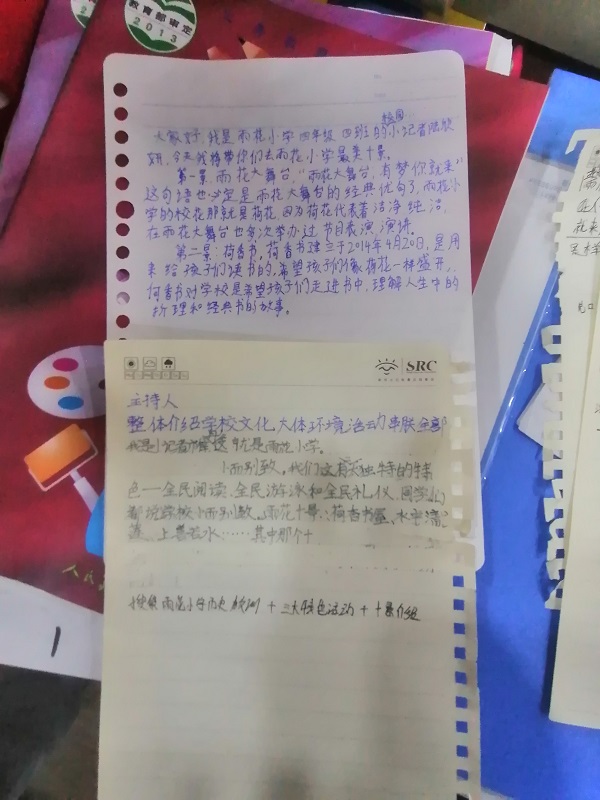 教育部审定
2013
校园
大家好,我是雨花小学四年级四班的小记者陆欣
妍,今天我将带你们去雨花小学最美十景。
第一景:雨花大舞台,"雨花大舞台,有梦你就来"
这句语也定是雨花大舞台的经典优句了,雨花小
学的校花那就是荷花,因为荷花代表着洁净,纯洁
在雨花大舞台也每次举办过节目表演,演讲。
第二景:荷香书,荷香书建立于2014年4月20日,是用
来给孩子们读书的,希望孩子们像荷花一样盛开,
何香书对学校是希望孩子们走进书中,理解人生中的
折理和经典书的故事。
SRC
主持人
整体介绍学校文化 大体环境 活动串联全部
我是小记者 这就是雨花小学。
小而别致,我们没有独特的特
色——全民阅读、全民游泳和全民礼仪,同学们
都说学校小而别致,雨花十景:荷香书
莲、上善若水……其中那个十
搜集雨花小学历史 + 三大特色活动 + 十景介绍
人民
1